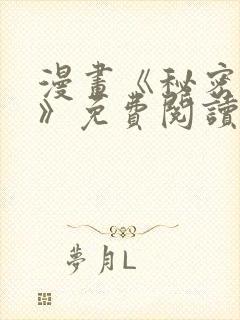 漫畫《秘密
》免費閱讀
夢月L